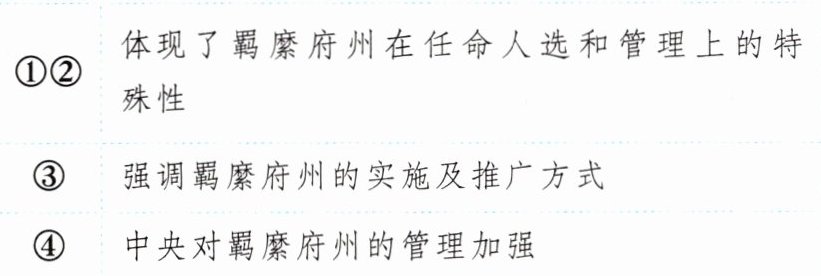 ①② 体现了羁縻府州在任命人选和管理上的特
殊性
③ 强调羁縻府州的实施及推广方式
④ 中央对羁縻府州的管理加强